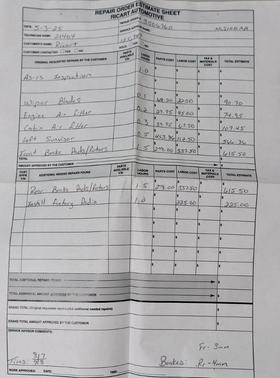 REPAIR ORDER ESTIMATE SHEET
RICART AUTOMOTIVE
DATE 5-3-25
TECHNICIAN NAME 21464
CUSTOMER'S NAME Ricart
CUSTOMER CONTACTED YES NO
ORIGINAL REQUESTED REPAIRS BY THE CUSTOMER PARTS AVAILABLE Y/N LABOR HOURS PARTS COST LABOR COST TAX & MATERIALS COST TOTAL ESTIMATE
AS-IS Inspection 1.0
Wiper Blades 22.00 90.70
Engine Air Filter 0.2 45.00 74.95
Cabin Air Filter 0.3 67.50 107.45
Left Sunvisor 0.5 112.50
Front Brake Pads/Rotors 1.5 278.00 337.50 615.50
TOTAL
AMOUNT APPROVED BY THE CUSTOMER
ADDITIONAL NEEDED REPAIRS FOUND PARTS AVAILABLE Y/N LABOR HOURS PARTS COST LABOR COST TAX & MATERIALS COST TOTAL ESTIMATE
Rear Brake Pads/Rotors 1.5 278.00 337.50 615.50
Install Factory Radio 1.0 225.00 225.00
TOTAL ADDITIONAL REPAIRS FOUND
TOTAL ADDITIONAL AMOUNT APPROVED BY THE CUSTOMER
GRAND TOTAL
GRAND TOTAL AMOUNT APPROVED BY THE CUSTOMER
SERVICE ADVISOR COMMENTS:
Fr-3mm
Tires Brakes: Rr-4mm
WORK APPROVED: DATE TIME